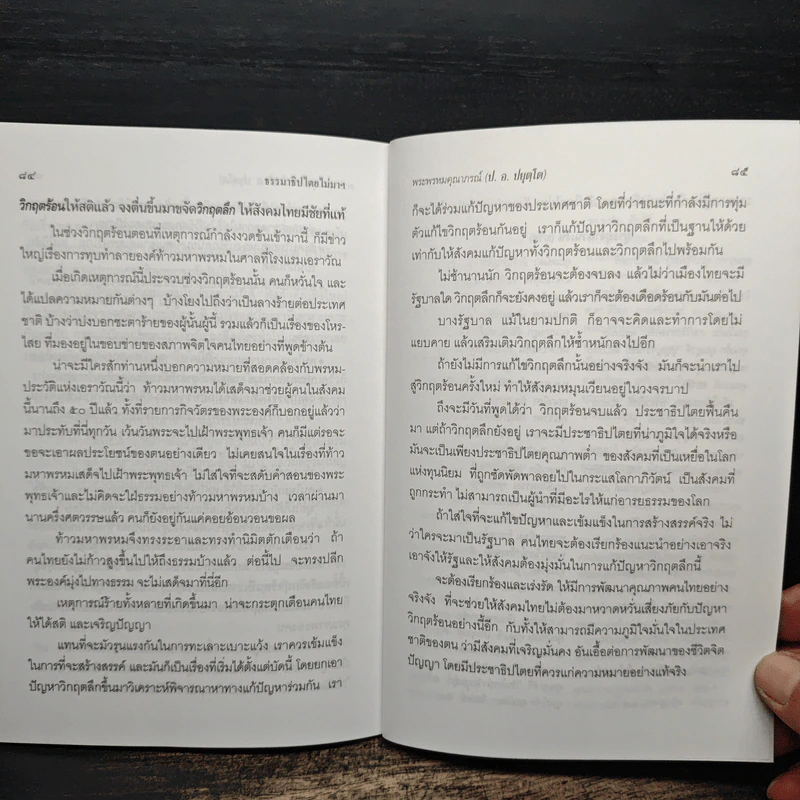 ๘๔
ธรรมาธิปไตยไม่มาฯ
วิกฤตร้อนให้สติแล้ว จงตื่นขึ้นมาขจัดวิกฤตลึก ให้สังคมไทยมีชัยที่แท้
ในช่วงวิกฤตร้อนตอนที่เหตุการณ์กำลังงวดขันเข้ามานี้ ก็มีข่าว
ใหญ่เรื่องการทุบทำลายองค์ท้าวมหาพรหมในศาลที่โรงแรมเอราวัณ
เมื่อเกิดเหตุการณ์นี้ประจวบช่วงวิกฤตร้อนนั้น คนก็หวั่นใจ และ
ได้แปลความหมายกันต่างๆ บ้างโยงไปถึงว่าเป็นลางร้ายต่อประเทศ
ชาติ บ้างว่าบ่งบอกชะตาร้ายของผู้นั้นผู้นี้ รวมแล้วก็เป็นเรื่องของโหร-
ไสย ที่มองอยู่ในขอบข่ายของสภาพจิตใจคนไทยอย่างที่พูดข้างต้น
น่าจะมีใครสักท่านหนึ่งบอกความหมายที่สอดคล้องกับพรหม-
ประวัติแห่งเอราวัณนี้ว่า ท้าวมหาพรหมได้เสด็จมาช่วยผู้คนในสังคม
นี้นานถึง ๕๐ ปีแล้ว ทั้งที่รายการกิจวัตรของพระองค์ก็บอกอยู่แล้วว่า
มาประทับที่นี่ทุกวัน เว้นวันพระจะไปเฝ้าพระพุทธเจ้า คนก็มีแต่รอจะ
ขอจะเอาผลประโยชน์ของตนอย่างเดียว ไม่เคยสนใจในเรื่องที่ท้าว
มหาพรหมเสด็จไปเฝ้าพระพุทธเจ้า ไม่ใส่ใจที่จะสดับคำสอนของพระ
พุทธเจ้าและไม่คิดจะใฝ่ธรรมอย่างท้าวมหาพรหมบ้าง เวลาผ่านมา
นานครึ่งศตวรรษแล้ว คนก็ยังอยู่กันแค่คอยอ้อนวอนขอผล
ท้าวมหาพรหมจึงทรงระอาและทรงทำนิมิตตักเตือนว่า ถ้า
คนไทยยังไม่ก้าวสูงขึ้นไปให้ถึงธรรมบ้างแล้ว ต่อนี้ไป จะทรงปลีก
พระองค์มุ่งไปทางธรรม จะไม่เสด็จมาที่นี่อีก
เหตุการณ์ร้ายทั้งหลายที่เกิดขึ้นมา น่าจะกระตุกเตือนคนไทย
ให้ได้สติ และเจริญปัญญา
แทนที่จะมัวรุนแรงกันในการทะเลาะเบาะแว้ง เราควรเข้มแข็ง
ในการที่จะสร้างสรรค์ และมันก็เป็นเรื่องที่เริ่มได้ตั้งแต่บัดนี้ โดยยกเอา
ปัญหาวิกฤตลึกขึ้นมาวิเคราะห์พิจารณาหาทางแก้ปัญหาร่วมกัน เรา
พระพรหมคุณาภรณ์ (ป. อ. ปยุตฺโต)
๘๕
ก็จะได้ร่วมแก้ปัญหาของประเทศชาติ โดยที่ว่าขณะที่กำลังมีการทุ่ม
ตัวแก้ไขวิกฤตร้อนกันอยู่ เราก็แก้ปัญหาวิกฤตลึกที่เป็นฐานให้ด้วย
เท่ากับให้สังคมแก้ปัญหาทั้งวิกฤตร้อนและวิกฤตลึกไปพร้อมกัน
ไม่ช้านานนัก วิกฤตร้อนจะต้องจบลง แล้วไม่ว่าเมืองไทยจะมี
รัฐบาลใด วิกฤตลึกก็จะยังคงอยู่ แล้วเราก็จะต้องเดือดร้อนกับมันต่อไป
บางรัฐบาล แม้ในยามปกติ ก็อาจจะคิดและทำการโดยไม่
แยบคาย แล้วเสริมเติมวิกฤตลึกให้ซ้ำหนักลงไปอีก
ถ้ายังไม่มีการแก้ไขวิกฤตลึกนั้นอย่างจริงจัง มันก็จะนำเราไป
สู่วิกฤตร้อนครั้งใหม่ ทำให้สังคมหมุนเวียนอยู่ในวงจรบาป
ถึงจะมีวันที่พูดได้ว่า วิกฤตร้อนจบแล้ว ประชาธิปไตยฟื้นคืน
มา แต่ถ้าวิกฤตลึกยังอยู่ เราจะมีประชาธิปไตยที่น่าภูมิใจได้จริงหรือ
มันจะเป็นเพียงประชาธิปไตยคุณภาพต่ำ ของสังคมที่เป็นเหยื่อในโลก
แห่งทุนนิยม ที่ถูกซัดพัดพาลอยไปในกระแสโลกาภิวัตน์ เป็นสังคมที่
ถูกกระทำ ไม่สามารถเป็นผู้นำที่มีอะไรให้แก่อารยธรรมของโลก
ถ้าใส่ใจที่จะแก้ไขปัญหาและเข้มแข็งในการสร้างสรรค์จริง ไม่
ว่าใครจะมาเป็นรัฐบาล คนไทยจะต้องเรียกร้องแนะนำอย่างเอาจริง
เอาจังให้รัฐและให้สังคมต้องมุ่งมั่นในการแก้ปัญหาวิกฤตลึกนี้
จะต้องเรียกร้องและเร่งรัด ให้มีการพัฒนาคุณภาพคนไทยอย่าง
จริงจัง ที่จะช่วยให้สังคมไทยไม่ต้องมาหวาดหวั่นเสี่ยงภัยกับปัญหา
วิกฤตร้อนอย่างนี้อีก กับทั้งให้สามารถมีความภูมิใจมั่นใจในประเทศ
ชาติของตน ว่ามีสังคมที่เจริญมั่นคง อันเอื้อต่อการพัฒนาของชีวิตจิต
ปัญญา โดยมีประชาธิปไตยที่ควรแก่ความหมายอย่างแท้จริง